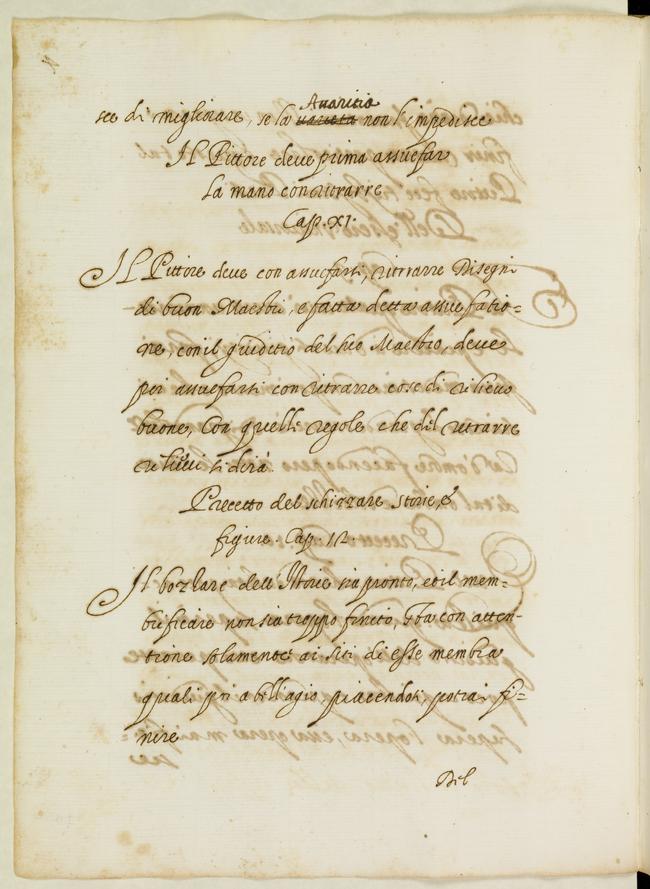 sce di migliorare, se la Auaritia non l'impedisce
Il Pittore deue prima assuefar
la mano con ritrarre
Cap. XI.
Il Pittore deue con assuefarsi, ritrarre Disegni
di buon Maestri, e fatta detta assuefatio=
ne, con il giuditio del suo Maestro, deue
poi assuefarsi con ritrarre cose di rilieuo
buone, Con quelle regole che del ritrarre
rilieui si dirà
Precetto del schizzare storie, &
figure. Cap. 12.
Il bozzare dell'Istorie sia pronto, et il mem=
bificare non sia troppo finito, stà con atten=
tione solamente ai siti di esse membra
quali poi a bell'agio, piacendoti, potrai fi=
nire
Del